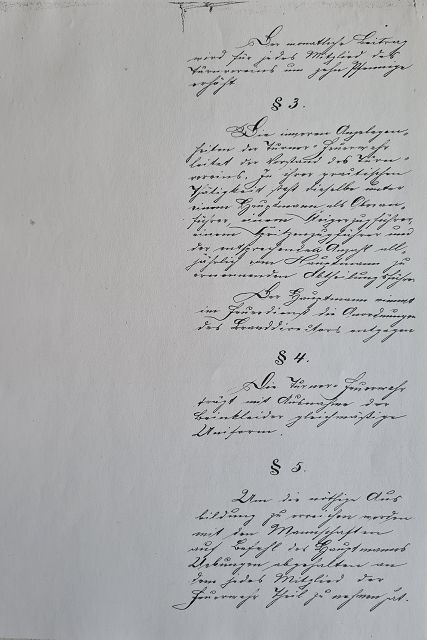 Der monatliche Beitrag
wird für jedes Mitglied des
Turnvereins um zehn Pfennige
erhöht
§ 3.
Die inneren Angelegen-
heiten der Turner-Feuerwehr
leitet der Vorstand des Turn-
vereins. In ihrer practischen
Thätigkeit steht dieselbe unter
einem Hauptmann als Oberan-
führer, einem Steigerzugführer,
einem Spritzenzugführer und
der entsprechenden Anzahl all-
jährlich vom Hauptmann zu
ernennenden Abtheilungsführer
Der Hauptmann nimmt
im Feuerdienst die Anordnungen
des Branddirectors entgegen
§ 4.
Die Turner-Feuerwehr
trägt mit Ausnahme der
Beinkleider gleichmäßige
Uniform.
§ 5.
Um die nöthige Aus
bildung zu erreichen werden
mit den Mannschaften
auf Befehl des Hauptmanns
Uebungen abgehalten an
dem jedes Mitglied der
Feuerwehr Theil zu nehmen hat.